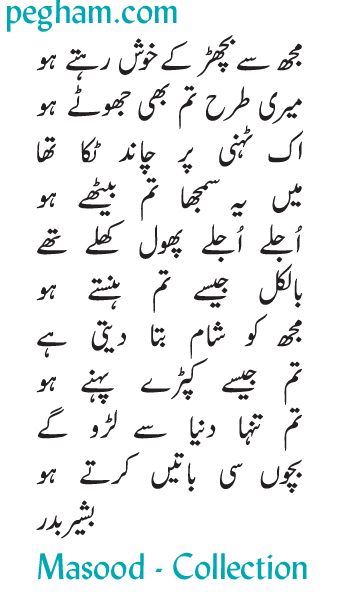 pegham.com
مجھ سے بچھڑ کے خوش رہتے ہو
میری طرح تم بھی جھوٹے ہو
اک ٹہنی پر چاند ٹکا تھا
میں یہ سمجھا تم بیٹھے ہو
اُجلے اُجلے پھول کھلے تھے
بالکل جیسے تم ہنستے ہو
مجھ کو شام بتا دیتی ہے
تم جیسے کپڑے پہنے ہو
تم تنہا دنیا سے لڑو گے
بچوں سی باتیں کرتے ہو
بشیر بدر
Masood - Collection